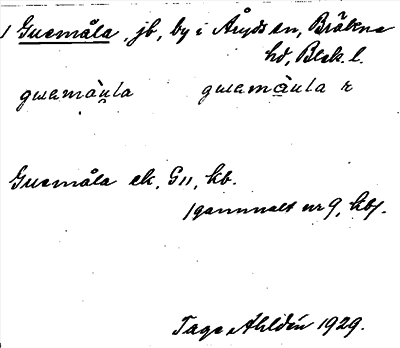 1 Guemåla, jb, by i Åryds sn, Bräkne
hd, Blek. l.
guemàula guemàula r
Guemåla ek, G 11, kb.
/gammalt nr 9, kb/.
Tage Ahldén 1929.